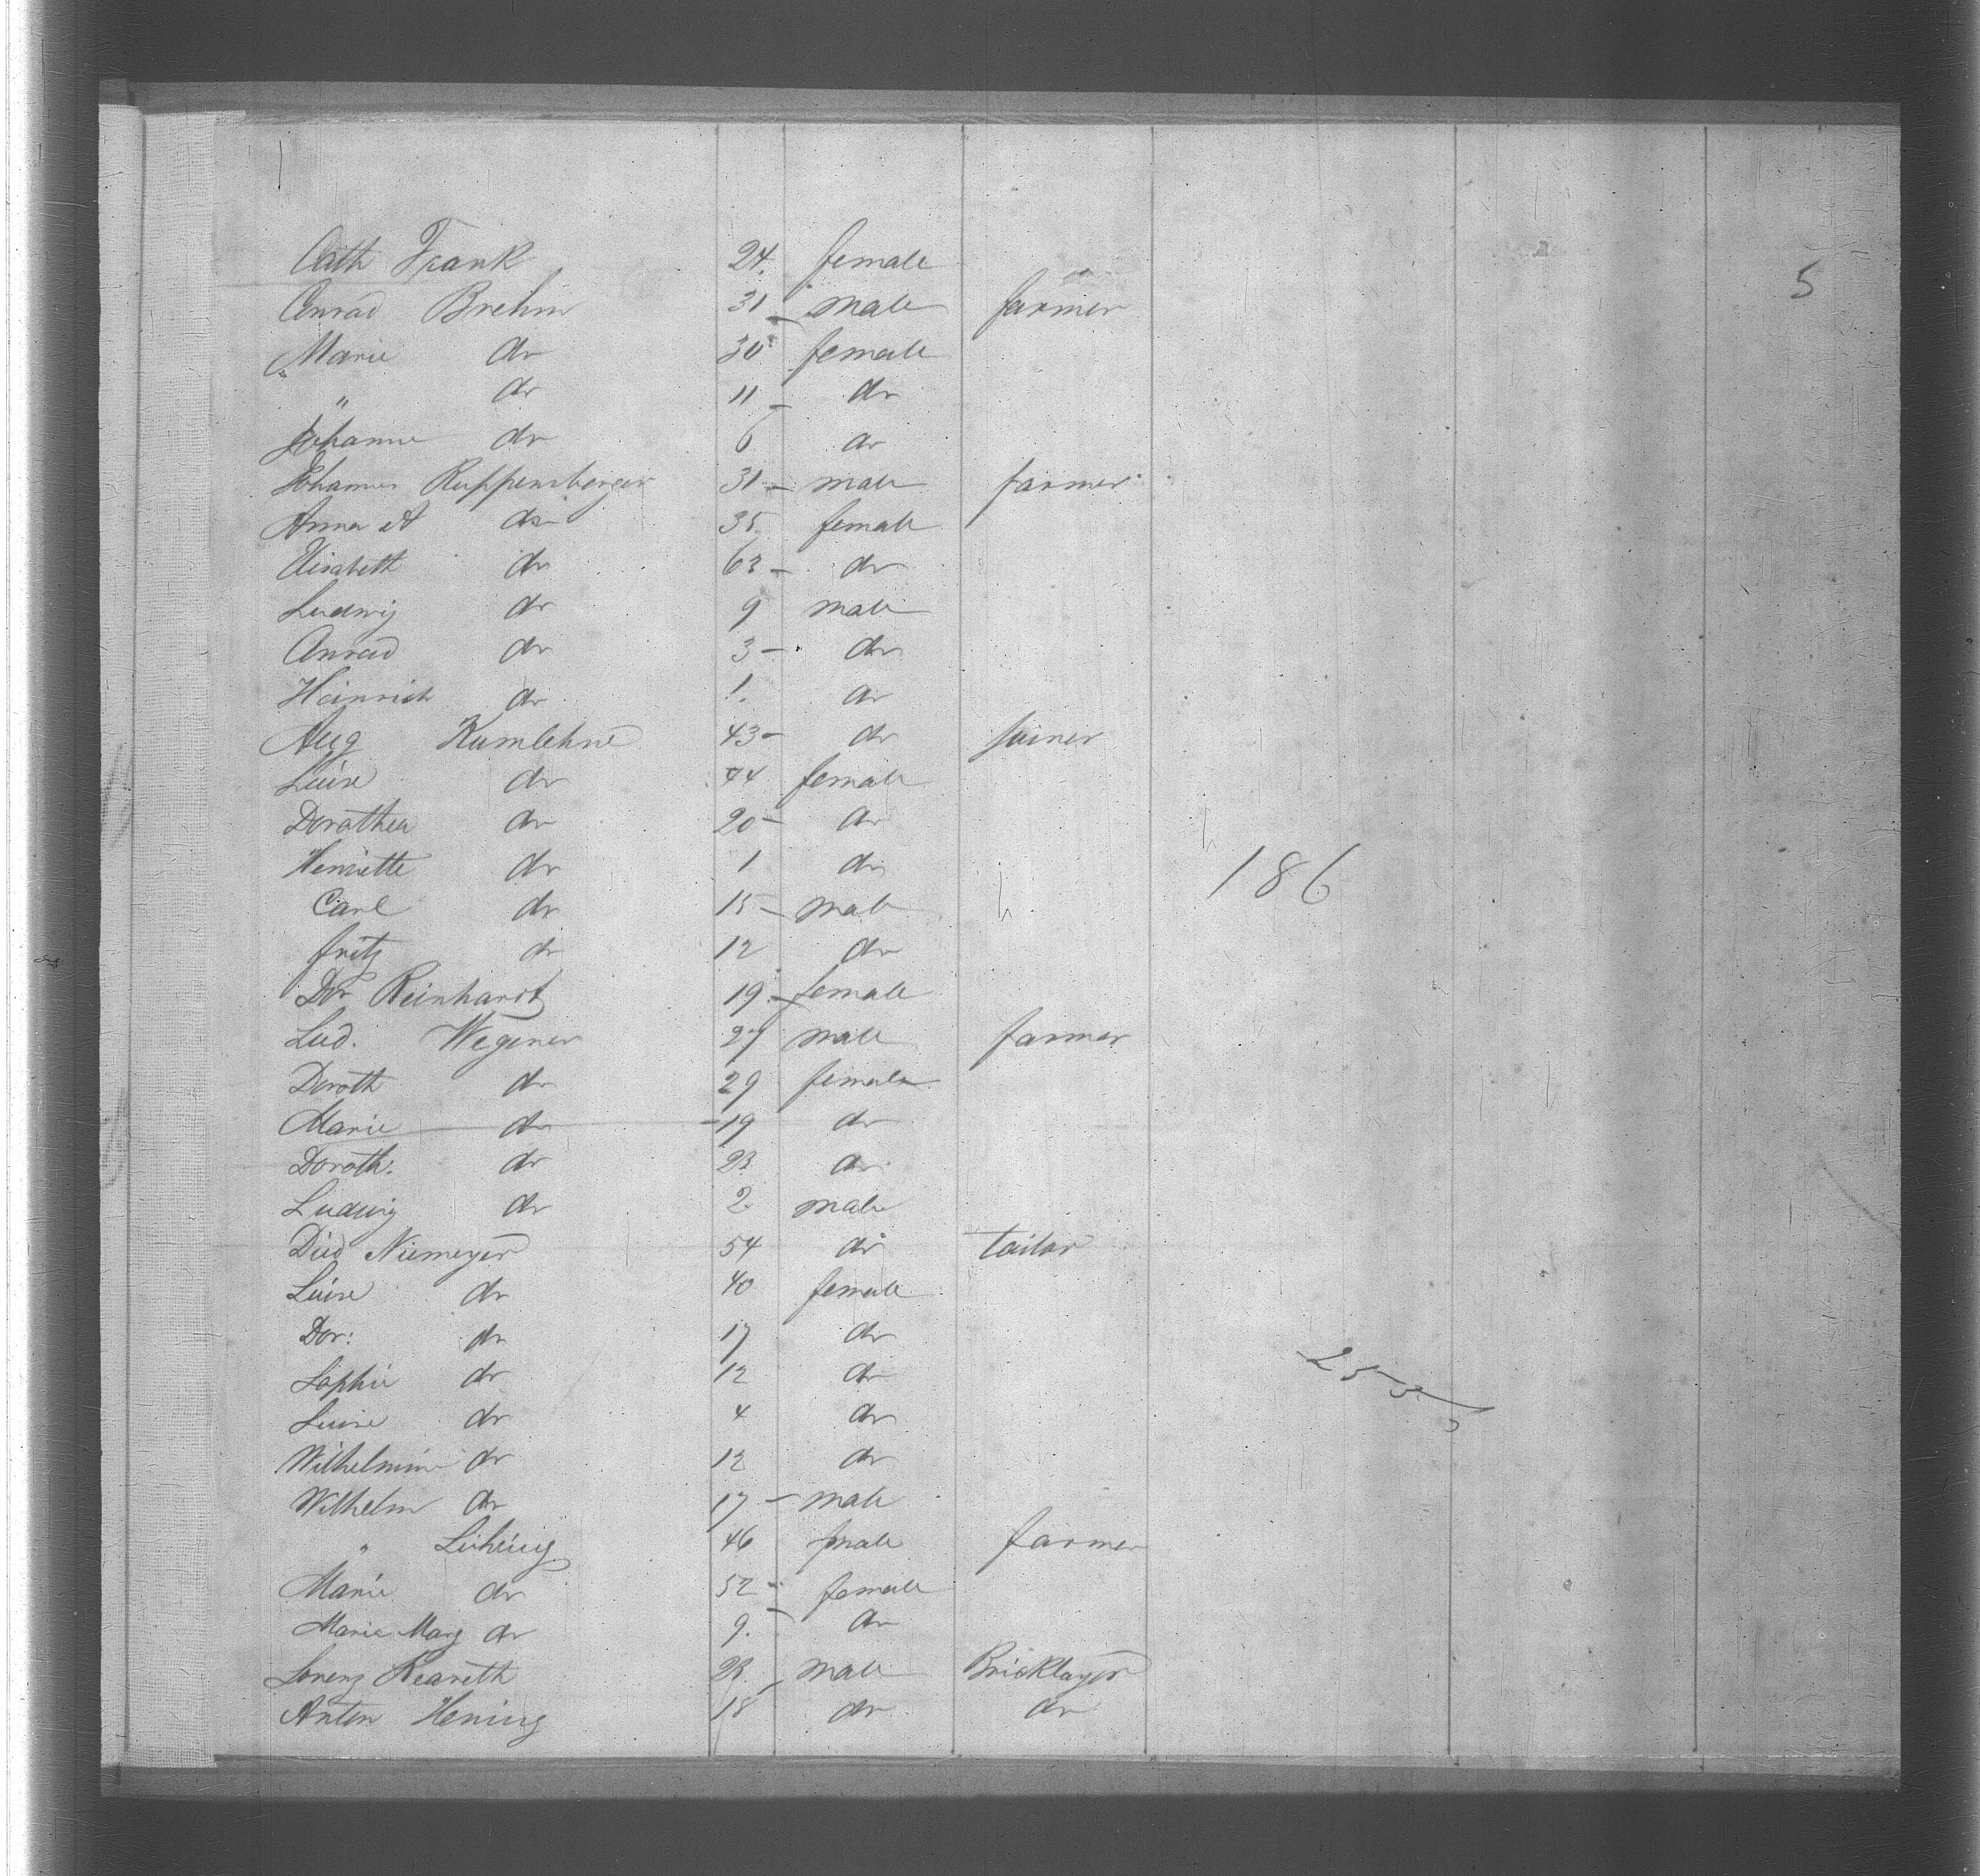 5
Cath Frank 24. female
Conrad Brehm 31 - male farmer
Marie do 30 female
" do 11 - do
Johanne do 6 do
Johannes Ruppersberger 31 - male farmer
Anna A do 35. female
Elisabeth do 63 - do
Ludwig do 9 male
Conrad do 3 - do
Heinrich do 1. do
Aug Kumlehne 43 - do joiner
Luise do 44 female
Dorothea do 20 - do
Henriette do 1 do
186
Carl do 15 - male
Fritz do 12 do
Dor Reinhardt 19. - female
Lud. Wegener 27 male farmer
Doroth do 29 female
Marie do - 19 do
Doroth: do 23 do
Ludwig do 2 male
Died Niemeyer 54 do tailor
Luise do 40 female
Dor: do 17 do
Sophie do 12 do
Luise do 4 do
Wilhelmine do 12 do
Wilhelm do 17 - male
" 46 male farmer
Marie do 52 - female
Marie Marg do 9. - do
Lorenz 23. male Bricklayer
Anton Hening 18 - do do